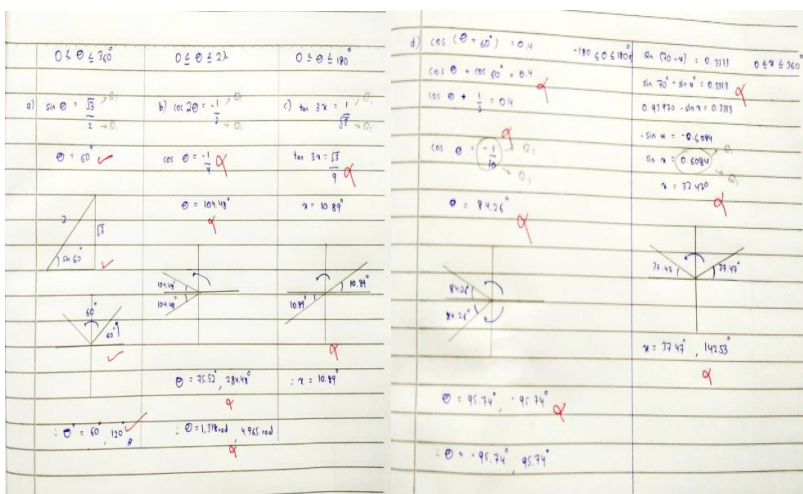 0 ≤ θ ≤ 360°
0 ≤ θ ≤ 2π
0 ≤ θ ≤ 180°
a) sin θ = √3/2
θ = 60°
2
√3
sin 60°
60°
60°
∴ θ = 60°, 120°
b) cos 2θ = -1/2
cos θ = -1/4
θ = 104.48°
104.48°
104.48°
θ = 75.52°, 284.48°
∴ θ = 1.318 rad, 4.965 rad
c) tan 3x = 1/√3
tan 3x = √3/9
x = 10.89°
10.89°
10.89°
∴ x = 10.89°
d) cos (θ + 60°) = 0.4
-180 ≤ θ ≤ 180°
cos θ + cos 60° = 0.4
cos θ + 1/2 = 0.4
cos θ = -1/10
θ = 84.26°
84.26°
84.26°
θ = 95.74°, -95.74°
∴ θ = -95.74°, 95.74°
sin (70 - x) = 0.3313
0 ≤ x ≤ 360°
sin 70° - sin x° = 0.3313
0.93970 - sin x = 0.3313
-sin x = -0.6084
sin x = 0.6084
x = 37.47°
37.47°
37.47°
x = 37.47°, 142.53°